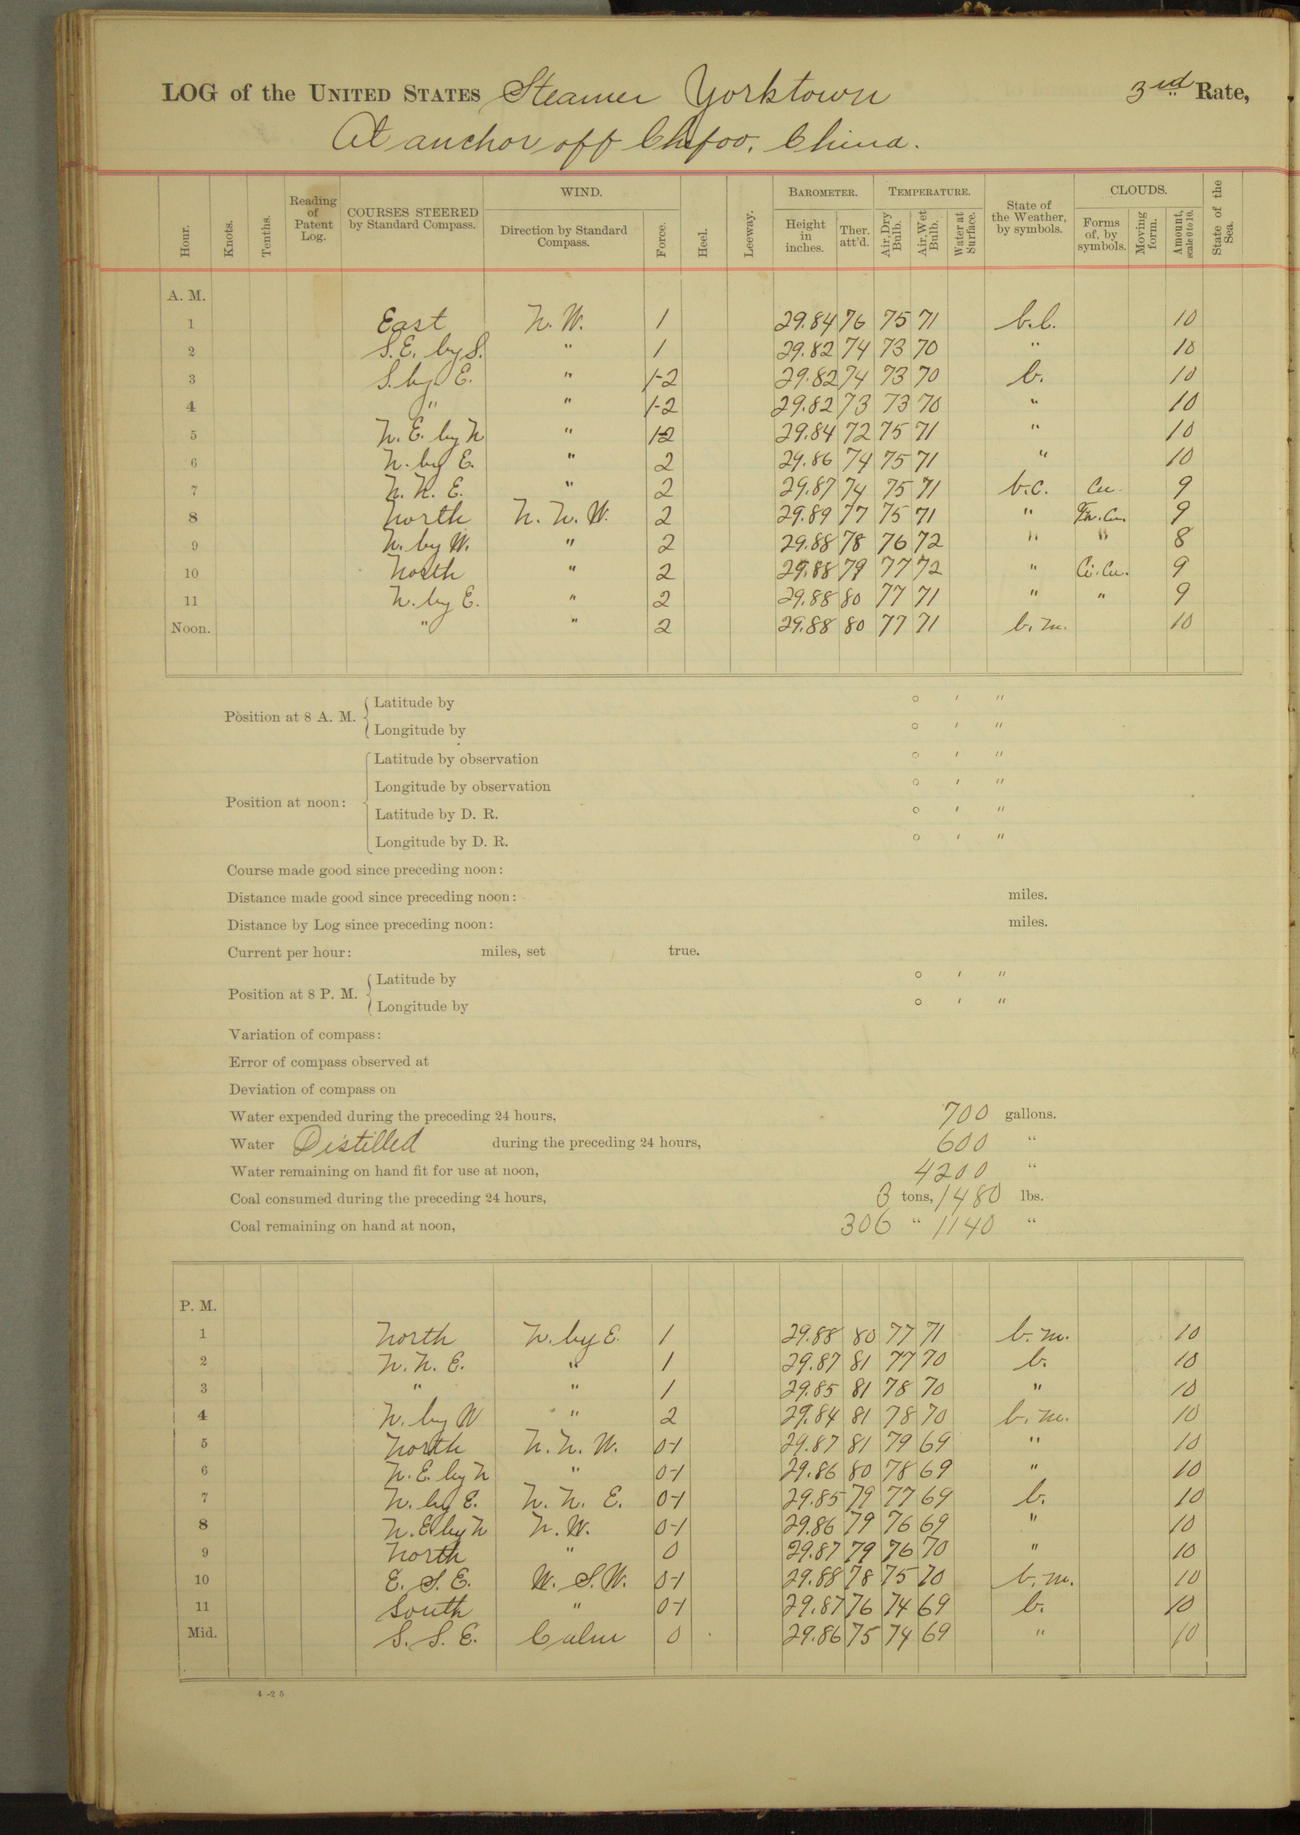 LOG of the UNITED STATES Steamer Yorktown 3rd Rate,
At anchor off Chefoo, China.
Hour. Knots. Tenths. Reading of Patent Log. COURSES STEERED by Standard Compass. WIND. Direction by Standard Compass. Force. Heel. Leeway. BAROMETER. Height in inches. Ther. att'd. TEMPERATURE. Air, Dry Bulb. Air, Wet Bulb. Water at Surface. State of the Weather, by symbols. CLOUDS. Forms of, by symbols. Moving form. Amount, scale 0 to 10. State of the Sea.
A. M.
1 East N. W. 1 29.84 76 75 71 b.c. 10
2 S. E. by S. " 1 29.82 74 73 70 " 10
3 S. by E. " 1-2 29.82 74 73 70 b. 10
4 " " 1-2 29.82 73 73 70 " 10
5 N. E. by N " 1-2 29.84 72 75 71 " 10
6 N. by E. " 2 29.86 74 75 71 " 10
7 N. N. E. " 2 29.87 74 75 71 b.c. Cu. 9
8 North N. N. W. 2 29.89 77 75 71 " Fr. Cu. 9
9 N. by W. " 2 29.88 78 76 72 " " 8
10 North " 2 29.88 79 77 72 " Ci. Cu. 9
11 N. by E. " 2 29.88 80 77 71 " " 9
Noon. " " 2 29.88 80 77 71 b. m. 10
Position at 8 A. M. Latitude by ° ′ ″
Longitude by ° ′ ″
Position at noon: Latitude by observation ° ′ ″
Longitude by observation ° ′ ″
Latitude by D. R. ° ′ ″
Longitude by D. R. ° ′ ″
Course made good since preceding noon:
Distance made good since preceding noon: miles.
Distance by Log since preceding noon: miles.
Current per hour: miles, set true.
Position at 8 P. M. Latitude by ° ′ ″
Longitude by ° ′ ″
Variation of compass:
Error of compass observed at
Deviation of compass on
Water expended during the preceding 24 hours, 700 gallons.
Water Distilled during the preceding 24 hours, 600 "
Water remaining on hand fit for use at noon, 4200 "
Coal consumed during the preceding 24 hours, tons, 1480 lbs.
Coal remaining on hand at noon, 306 " 1140 "
P. M.
1 North N. by E. 1 29.88 80 77 71 b. m. 10
2 N. N. E. " 1 29.87 81 77 70 b. 10
3 " " 1 29.85 81 78 70 " 10
4 N. by W " 2 29.84 81 78 70 b. m. 10
5 North N. N. W. 0-1 29.87 81 79 69 " 10
6 N. E. by N " 0-1 29.86 80 78 69 " 10
7 N. by E. N. N. E. 0-1 29.85 79 77 69 b. 10
8 N. E by N N. W. 0-1 29.86 79 76 69 " 10
9 North " 0 29.87 79 76 70 " 10
10 E. S. E. W. S. W. 0-1 29.88 78 75 70 b. m. 10
11 South " 0-1 29.87 76 74 69 b. 10
Mid. S. S. E. Calm 0 29.86 75 74 69 " 10
4-25